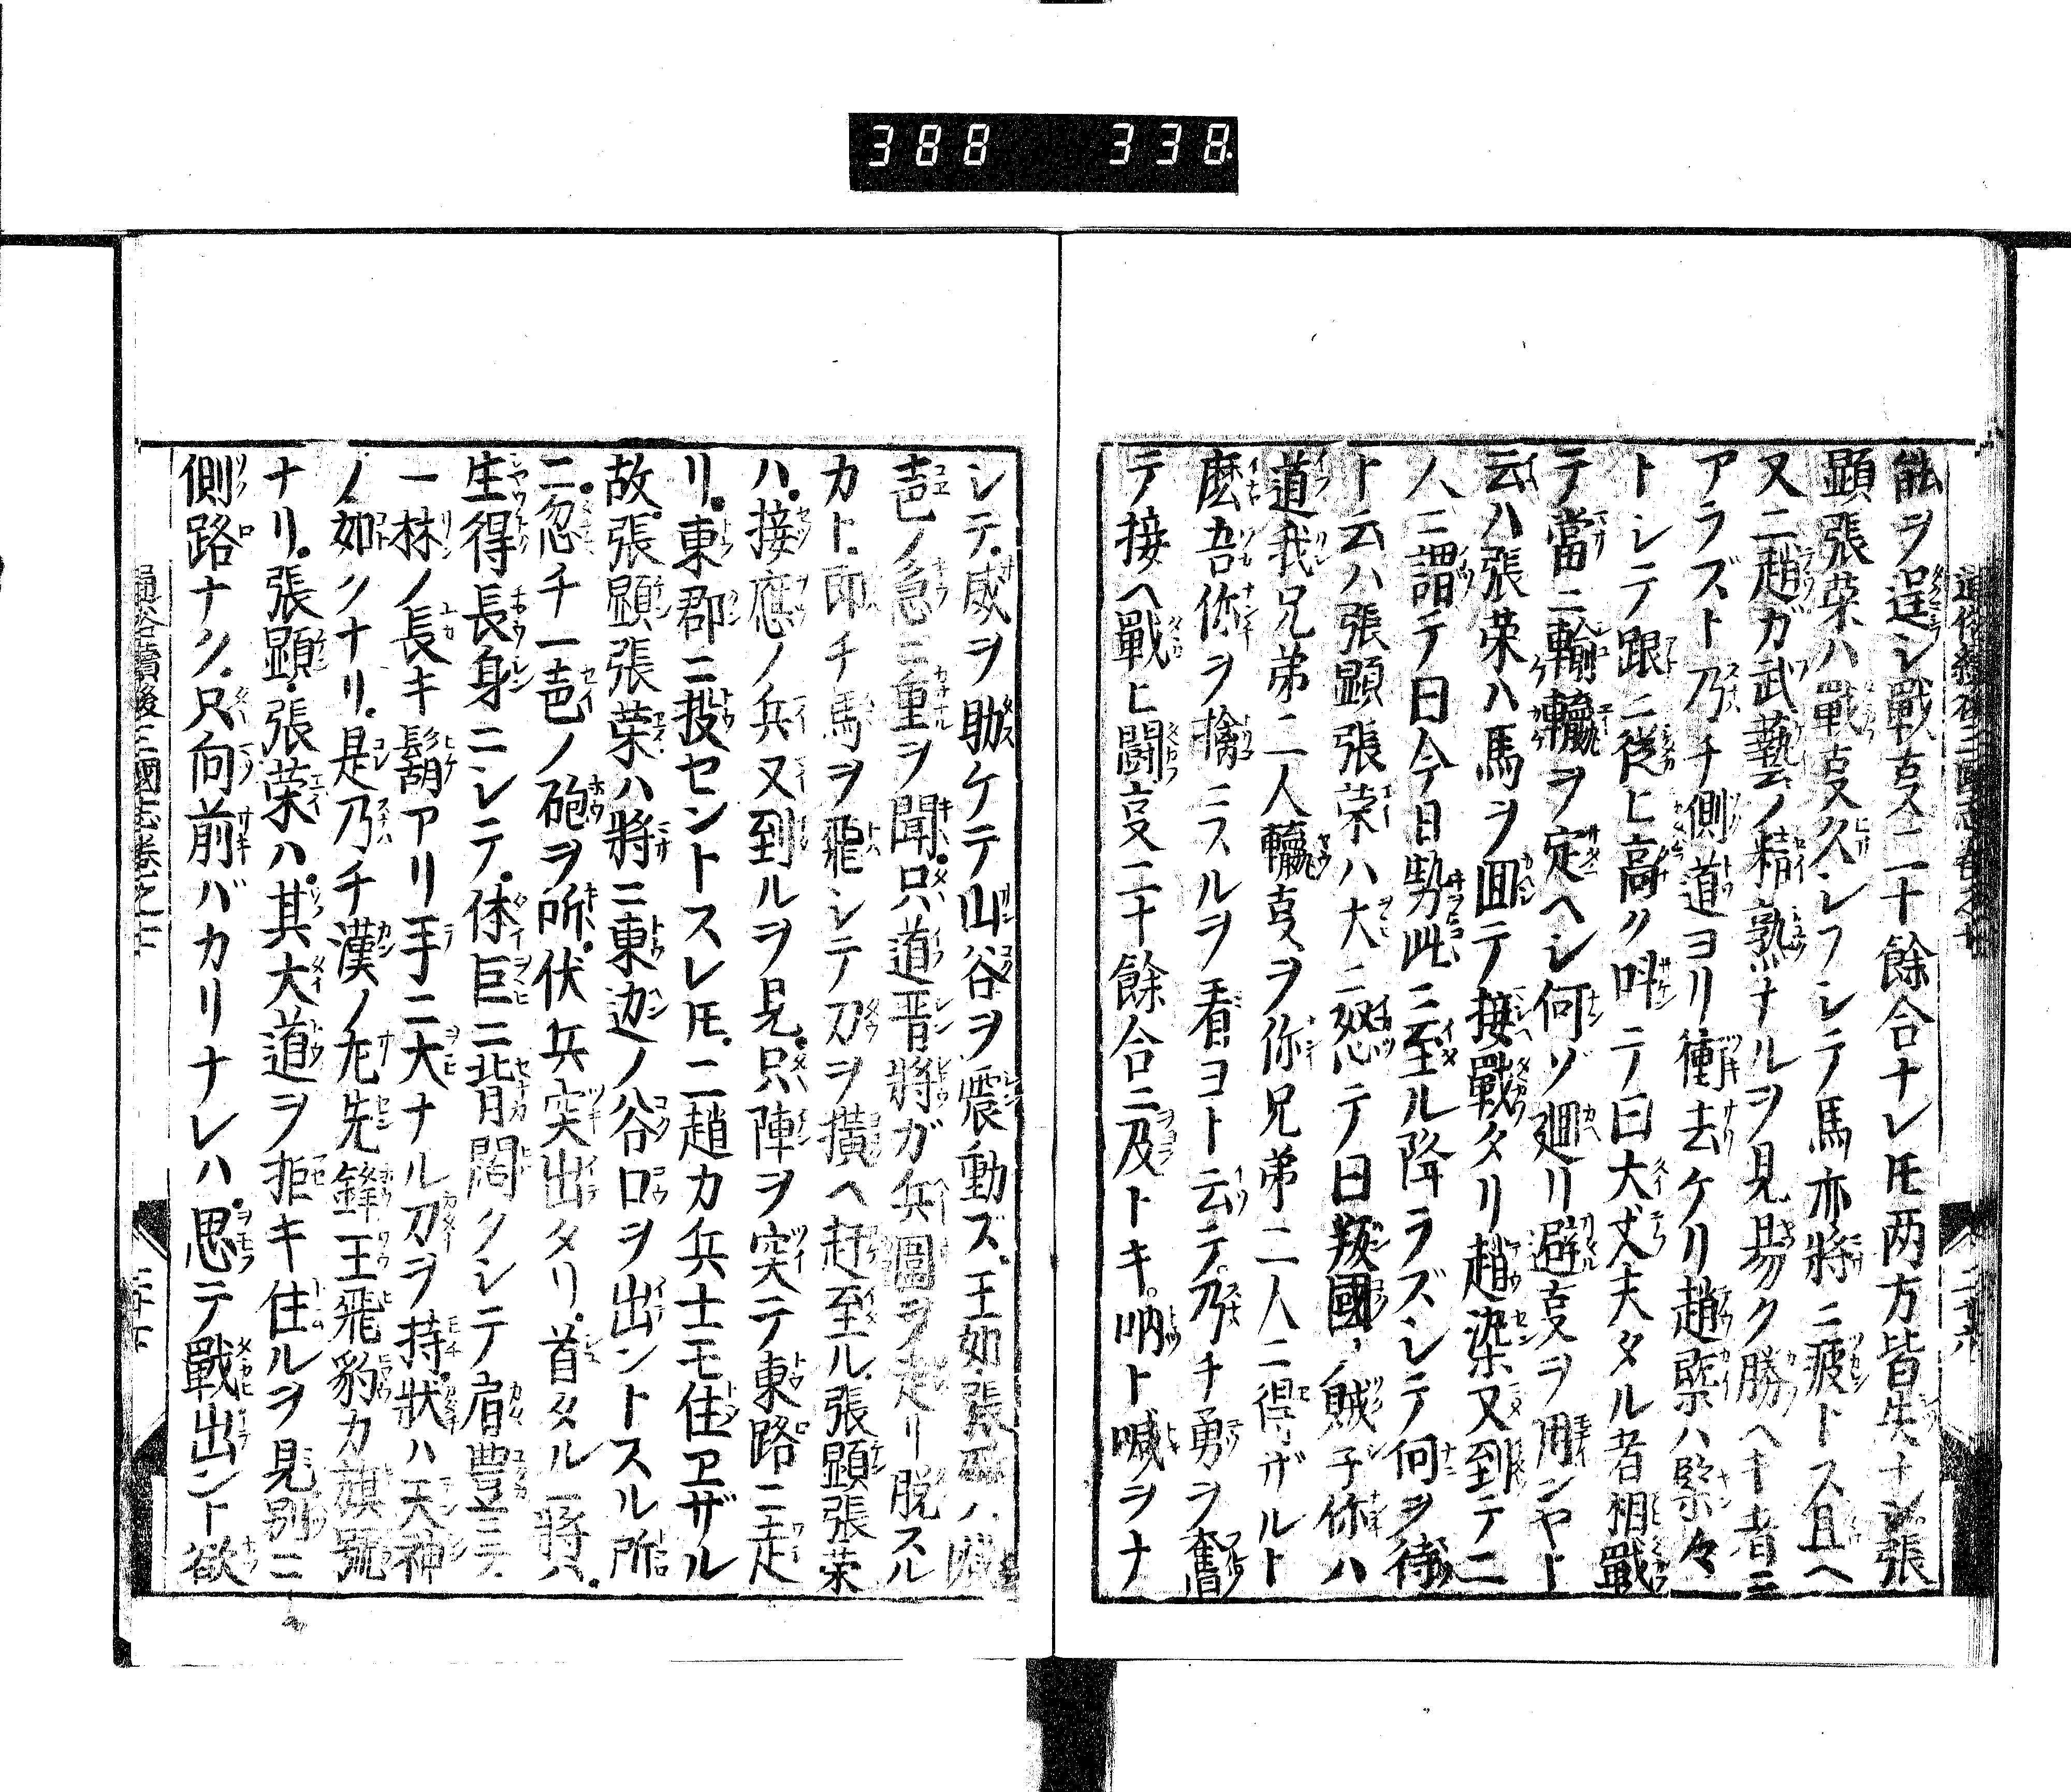 388 338
能ヲ逞シ戰支二十餘合ナレ𪜈两方皆失ナシ張
顕張榮ハ戰支久シフシテ馬亦將ニ疲トス且ヘ
又二趙ガ武藝ノ精熟ナルヲ見易ク勝ヘキ者ニ
アラズト乃チ側道ヨリ衝去ケリ趙槩ハ緊々
トシテ跟ニ從ヒ高ク叫テ曰大丈夫タル者相戰
テ當ニ輸贏ヲ定ヘシ何ゾ廻リ避支ヲ用ンヤト
云ハ張榮ハ馬ヲ囬テ接戰タリ趙染又到テ二
人ニ謂テ曰今日勢此ニ至ル降ラズシテ何ヲ待
ト云ハ張顕張榮ハ大ニ怒テ曰叛國ノ賊子你ハ
道我兄弟二人贏支ヲ你兄弟二人ニ得ザルト
麽吾你ヲ擒ニスルヲ看ヨト云テ乃チ勇ヲ奮
テ接ヘ戰ヒ鬪支二十餘合ニ及トキ呐ト喊ヲナ
シテ威ヲ助ケテ山谷ヲ震動ズ王如張
㐌ノ急ニ重ヲ聞只道晋將ガ兵圍ヲ走リ脱スル
カト即チ馬ヲ飛シテ刀ヲ横ヘ赶至ル張顕張榮
ハ接應ノ兵又到ルヲ見只陣ヲ突テ東路ニ走
リ東郡ニ投セントスレ𪜈二趙カ兵士モ住ヱザル
故張顕張榮ハ將ニ東边ノ谷口ヲ出ントスル所
ニ忽チ一㐌ノ砲ヲ听伏兵突出タリ首タル一將ハ
生得長身ニシテ体巨ニ背闊クシテ肩豊ニテ
一林ノ長キ鬍アリ手ニ大ナル刀ヲ持狀ハ天神
ノ如クナリ是乃チ漢ノ先鋒王飛豹カ旗號
ナリ張顕張榮ハ其大道ヲ拒キ住ルヲ見別ニ
側路ナク只向前バカリナレハ思テ戰出ント欲
通俗續後三國志卷之十